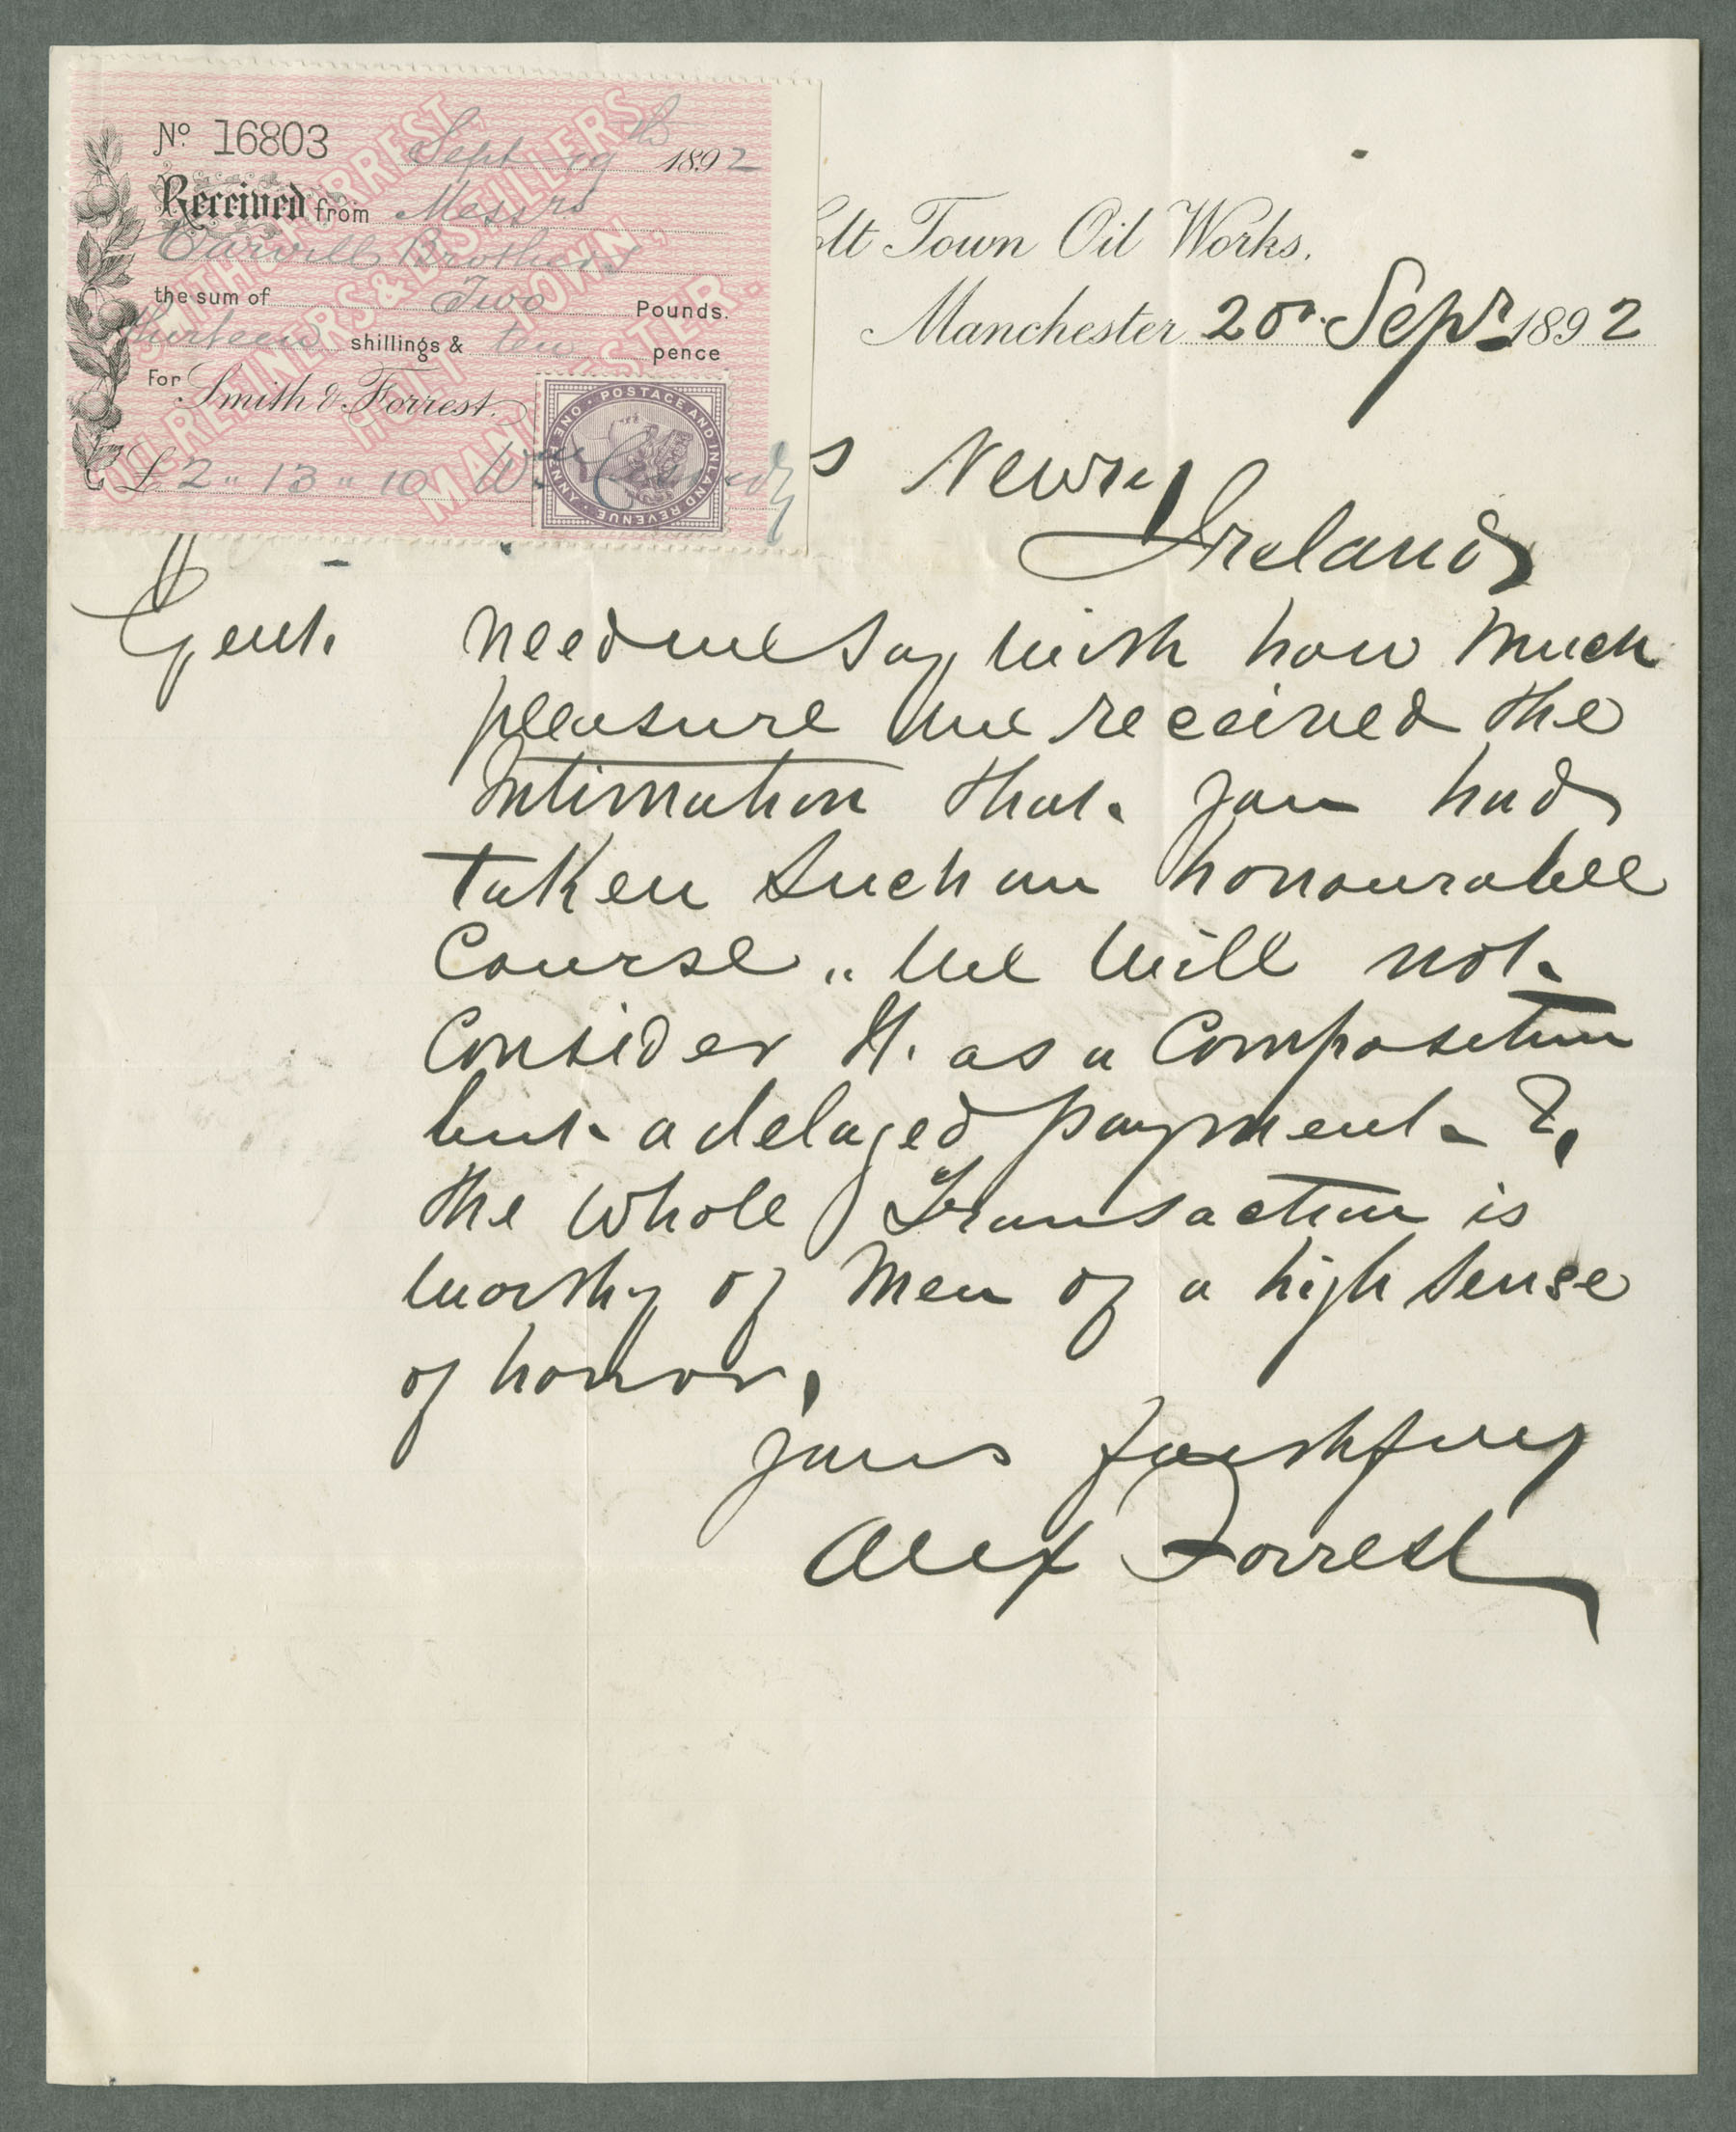 No. 16803
Sept 19th 1892
Received from Messrs
Carvill Brothers
the sum of Two Pounds.
thirteen shillings & ten pence
For Smith & Forrest.
£2 " 13 " 10 Wm
SMITH & FORREST,
OIL REFINERS & DISTILLERS,
HOLT TOWN,
MANCHESTER.
POSTAGE AND INLAND REVENUE · ONE PENNY ·
olt Town Oil Works.
Manchester 20th Sepr 1892
s Newry
Ireland
Gent. need we say with how much
pleasure we received the
Intimation that you had
taken such an honourable
Course " We will not
Consider It as a Composition
but a delayed payment &
the whole Transaction is
worthy of Men of a high sense
of honor,
yours faithfully
Alex Forrest